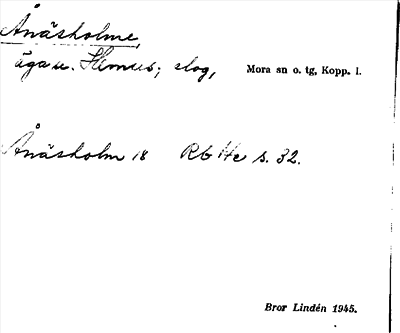 Ånäsholme,
äga u. Hemus; slog, Mora sn o. tg, Kopp. l.
Ånäsholm 18 Rb s. 32.
Bror Lindén 1945.